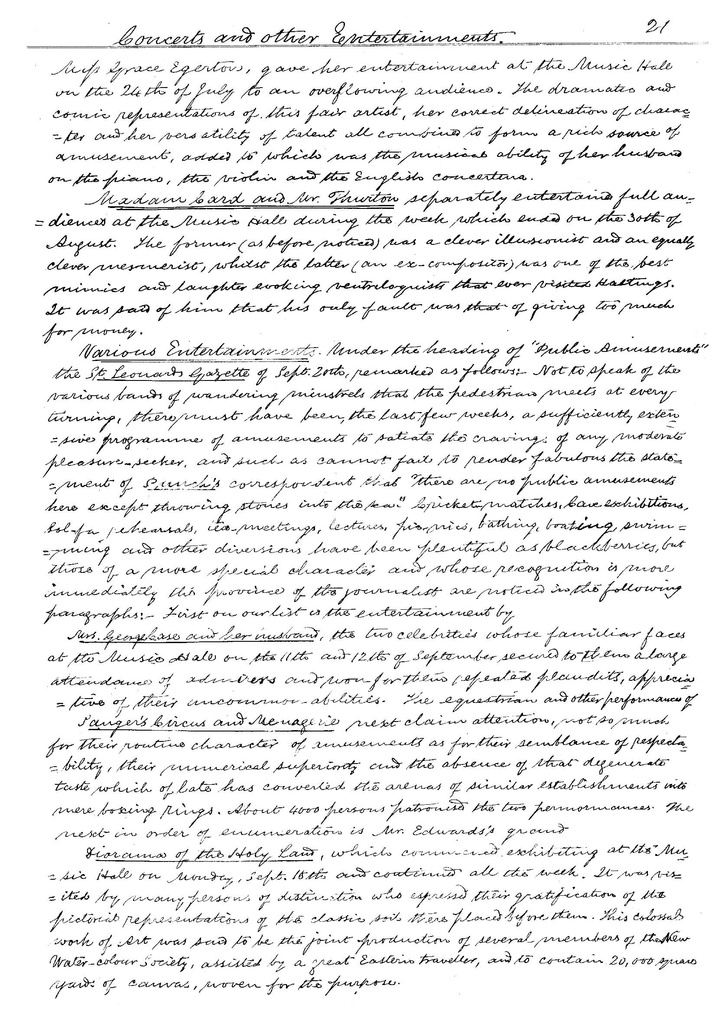 Concerts and other Entertainments. 21
Miss Grace Egerton, gave her entertainment at the Music Hall
on the 24th of July to an overflowing audience. The dramatic and
comic representations of this fair artist, her correct delineation of charac=
=ter and her versatility of talent all combined to form a rich source of
amusement, added to which was the musical ability of her husband
on the piano, the violin and the English concertina.
Madam Card and Mr. Thurton separately entertained full au=
=diences at the Music Hall during the week which ended on the 30th of
August. The former (as before noticed) was a clever illusionist and an equally
clever mesmerist, whilst the latter (an ex-compositor) was one of the best
mimics and laughter evoking ventriloquists that ever visited Hastings.
It was said of him that his only fault was that of giving too much
for money.
Various Entertainments. Under the heading of "Public Amusements"
the St. Leonards Gazette of Sept. 20th, remarked as follows:- Not to speak of the
various bands of wandering minstrels that the pedestrian meets at every
turning, there must have been, the last few weeks, a sufficiently exten
=sive programme of amusements to satiate the cravings of any moderate
pleasure-seeker, and such as cannot fail to render fabulous the state=
=ment of Punch's correspondent that "there are no public amusements
here except throwing stones into the sea." Cricket matches, exhibitions,
Sol-fa rehearsals, tea-meetings, lectures, pic-nics, bathing, boating, swim=
=ming and other diversions have been plentiful as blackberries, but
those of a more special character and whose recognition is more
immediately the province of the journalist are noticed in the following
paragraphs:- First on our list is the entertainment by
Mrs. George Case and her husband, the two celebrities whose familiar faces
at the Music Hall on the 11th and 12th of September secured to them a large
attendance of admirers and won for them repeated plaudits, apprecia
=tive of their uncommon abilities. The equestrian and other performances of
Sanger's Circus and Menagerie next claim attention, not so much
for their routine character of amusements as for their semblance of respecta=
=bility, their numerical superiority and the absence of that degenerate
taste which of late has converted the arenas of similar establishments into
mere boxing rings. About 4000 persons patronised the two permormances. The
next in order of enumeration is Mr. Edwards's grand
Diorama of the Holy Land, which commenced exhibiting at the Mu=
=sic Hall on Monday, Sept. 15th and continued all the week. It was vis=
=ited by many persons of distinction who expressed their gratification of the
pictorial representations of the classic soil there placed before them. This colossal
work of Art was said to be the joint production of several members of the New
Water-colour Society, assisted by a great Eastern traveller, and to contain 20,000 square
yards of canvas, woven for the purpose.